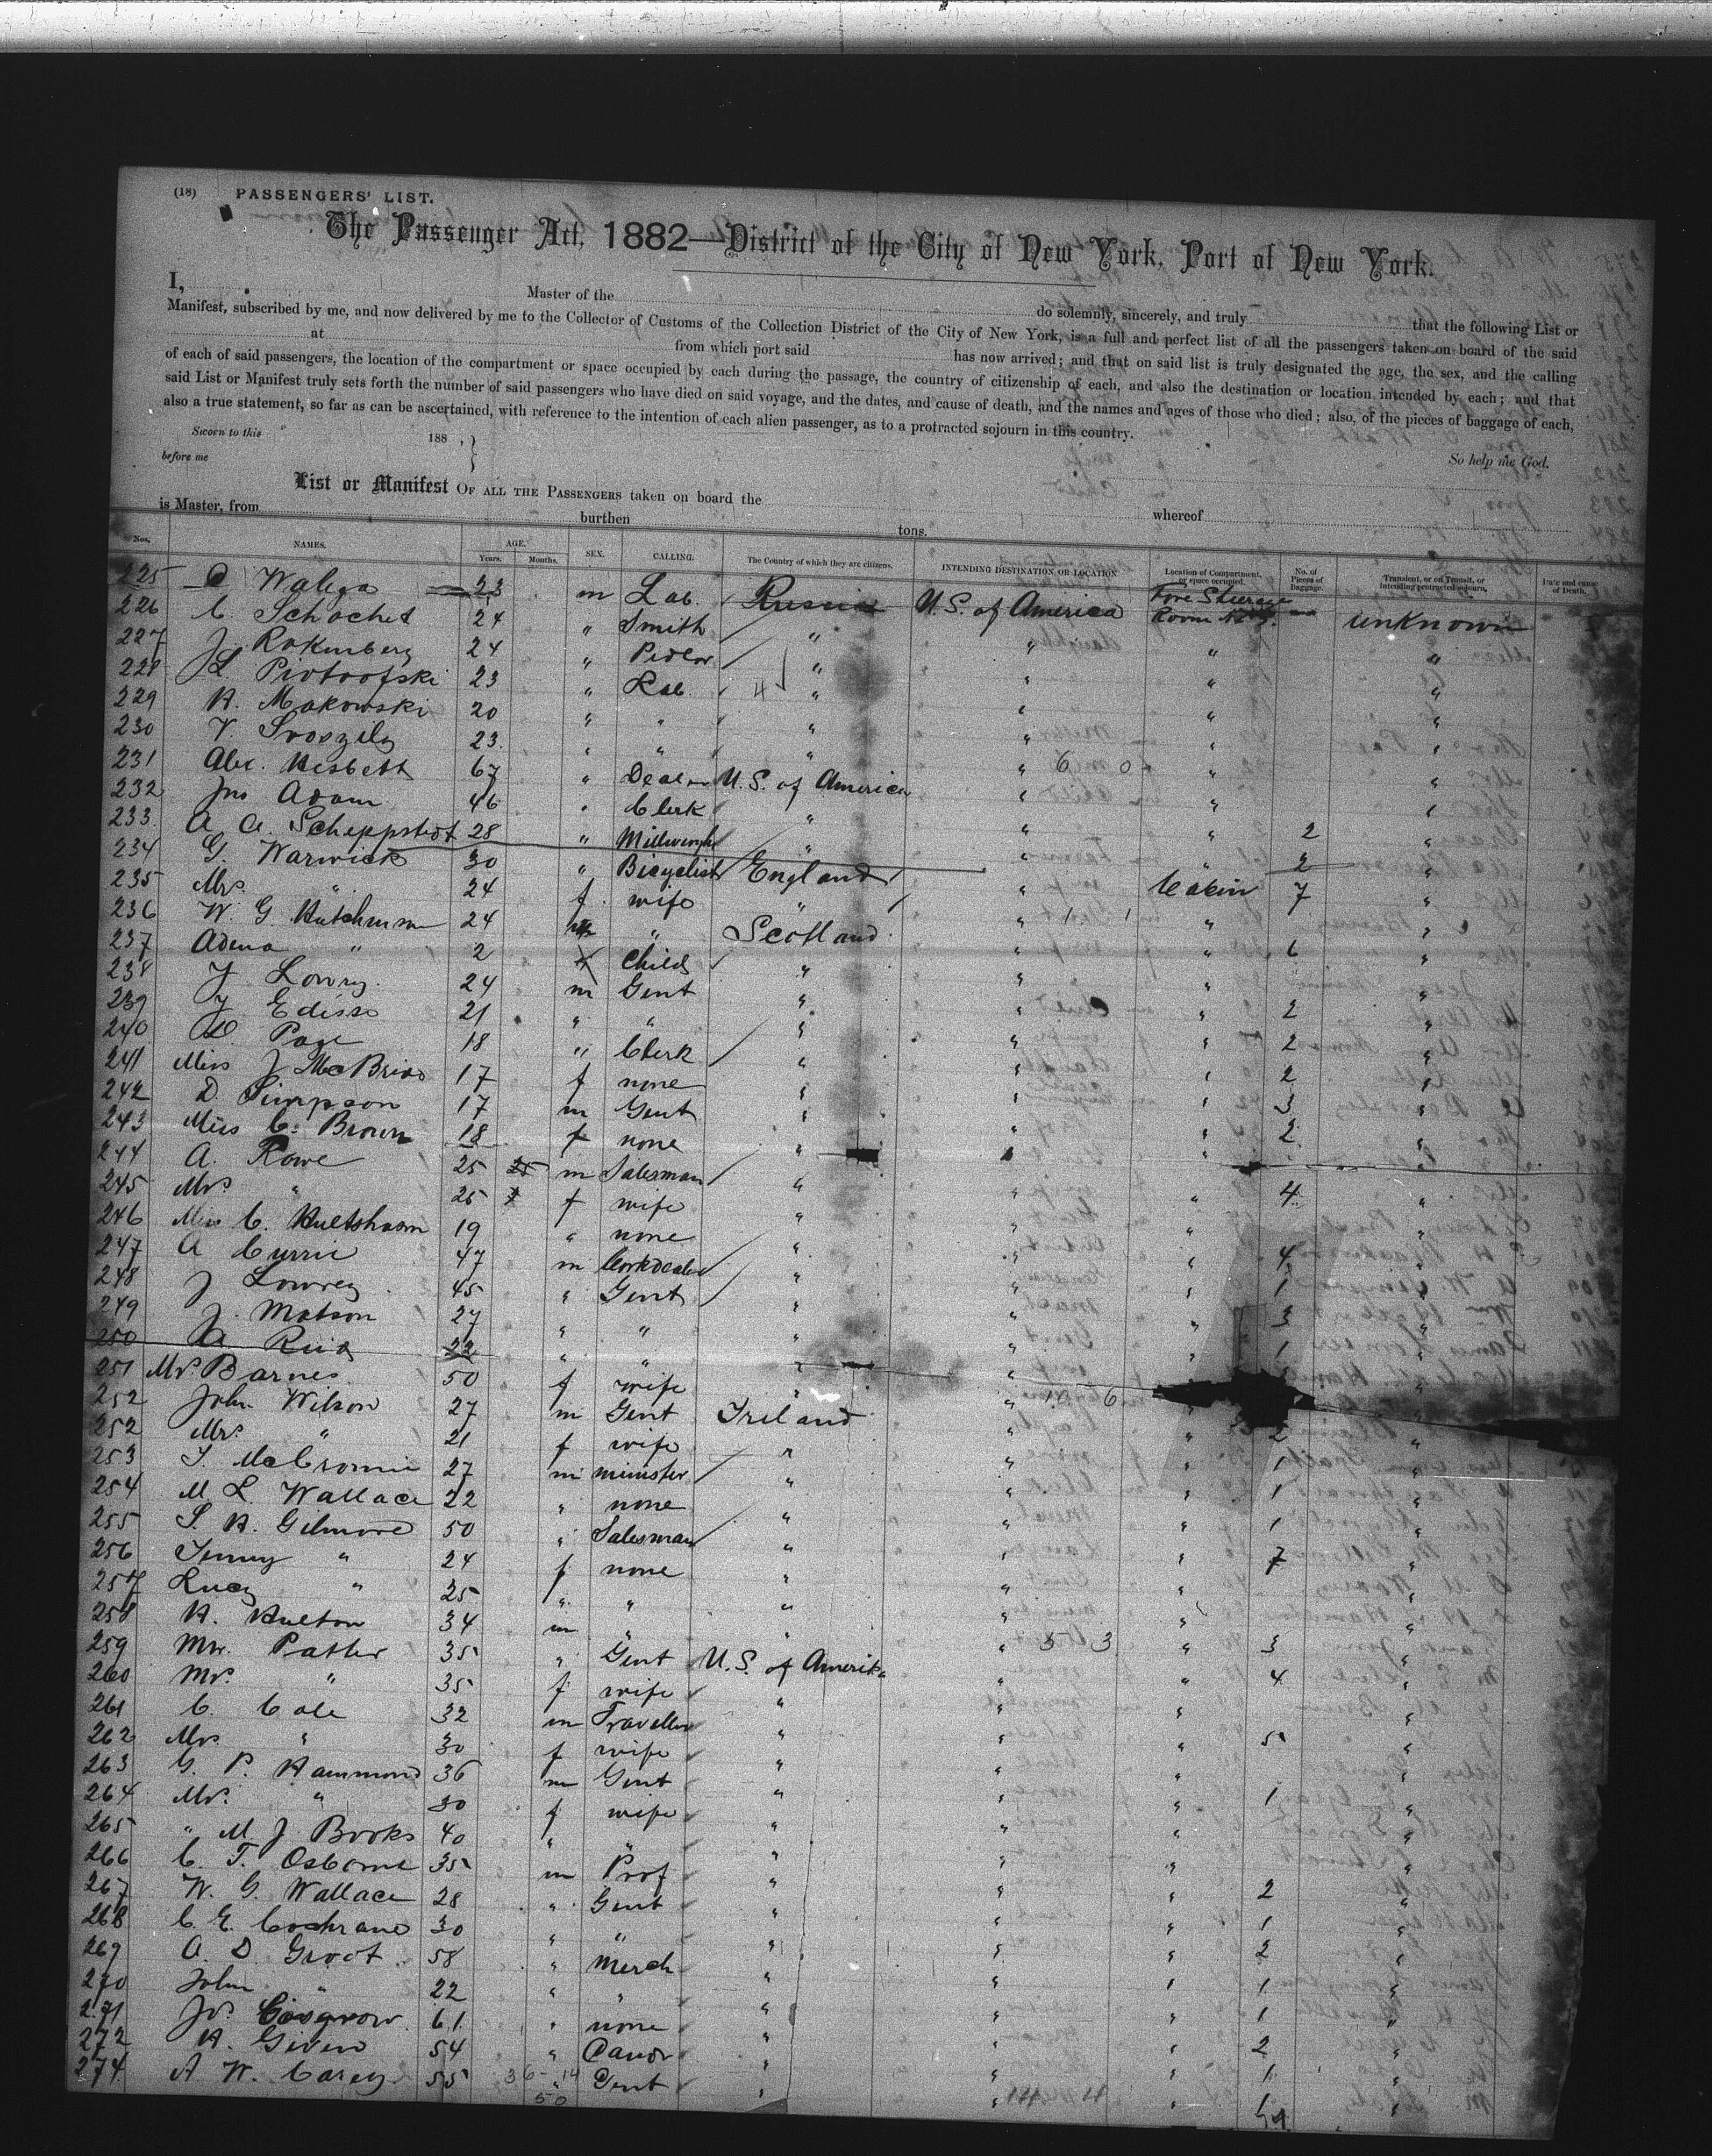 (18) PASSENGERS' LIST.
The Passenger Act, 1882—District of the City of New York, Port of New York.
I, Master of the do solemnly, sincerely, and truly that the following List or
Manifest, subscribed by me, and now delivered by me to the Collector of Customs of the Collection District of the City of New York, is a full and perfect list of all the passengers taken on board of the said
at from which port said has now arrived; and that on said list is truly designated the age, the sex, and the calling
of each of said passengers, the location of the compartment or space occupied by each during the passage, the country of citizenship of each, and also the destination or location intended by each; and that
said List or Manifest truly sets forth the number of said passengers who have died on said voyage, and the dates, and cause of death, and the names and ages of those who died; also, of the pieces of baggage of each,
also a true statement, so far as can be ascertained, with reference to the intention of each alien passenger, as to a protracted sojourn in this country.
So help me God.
Sworn to this 188 , }
before me
List or Manifest OF ALL THE PASSENGERS taken on board the whereof
is Master, from burthen tons.
Nos. NAMES. AGE. Years. Months. SEX. CALLING. The Country of which they are citizens. INTENDING DESTINATION OR LOCATION Location of Compartment, or space occupied. No. of Pieces of Baggage. Transient, or on Transit, or intending protracted sojourn. Date and cause of Death.
225 D Walega 23 m Lab. Russia U.S. of America Fore Steerage Room unknown
226 C. Schochet 24 " Smith " " " "
227 J. 24 " Pedler " " " "
228 L. 23 " Lab. " " " "
229 A. Makowski 20 " " " " " "
230 V. 23 " " " " " "
231 Alex. Nesbett 67 " Dealer U.S. of America " 6 0 " "
232 Jno Adam 46 " Clerk " " " 2 "
233 A. A. 28 " " " " 2 "
234 G. Warwick 30 " Bicyclist England " Cabin 7 "
235 Mrs. " 24 f wife " " " "
236 W. G. 24 " Scotland " 1 1 " 6 "
237 " 2 Child " " " "
238 J. Lowry 24 m Gent " " " 2 "
239 J. 21 " " " " " 2 "
240 D. Page 18 " Clerk " " " 2 "
241 Miss J McBride 17 f none " " " 3 "
242 D. Simpson 17 m Gent " " " 2 "
243 Miss C. Brown 18 f none " " " "
244 A. Rowe 25 m Salesman " " " 4 "
245 Mrs. " 25 f wife " " " "
246 Miss C. 19 " none " " " 4 "
247 A Currie 47 m " " " 1 "
248 J Lowrey 45 " Gent " " " 3 "
249 J. Matson 27 " " " " " 1 "
250 A Reid 22 " " " " "
251 Mrs Barnes 50 f wife " " 6 "
252 John Wilson 27 m Gent Ireland " " 2 "
252 Mrs. " 21 f wife " " " 1 "
253 27 m minister " " " 1 "
254 M L. Wallace 22 " none " " " 1 "
255 S. A. Gilmore 50 " Salesman " " " 7 "
256 Jenny " 24 f none " " " "
257 Lucy " 25 " " " " " "
258 A. Hulton 34 m " " " 5 3 " 3 "
259 Mr. 35 " Gent U.S. of America " " 4 "
260 Mrs. " 35 f wife " " " "
261 C. Cole 32 m Traveller " " " 5 "
262 Mrs. " 30 f wife " " " "
263 G. P. Hammond 36 m Gent " " " 1 "
264 Mrs. " 30 f wife " " " "
265 " M J Books 40 " " " " " "
266 C. T. Osborne 35 m Prof " " " 2 "
267 W. G. Wallace 28 " Gent " " " 1 "
268 C. E. Cochrane 30 " " " " " 2 "
269 A. D. Groot 58 " Merch " " " 1 "
270 John " 22 " " " " " 1 "
271 Jos. Cosgrove 61 " none " " " 2 "
272 A. Given 54 " " " " 1 "
274 A W. Carey 55 " Gent " " 14 4 " 1 "
36 - 14
50